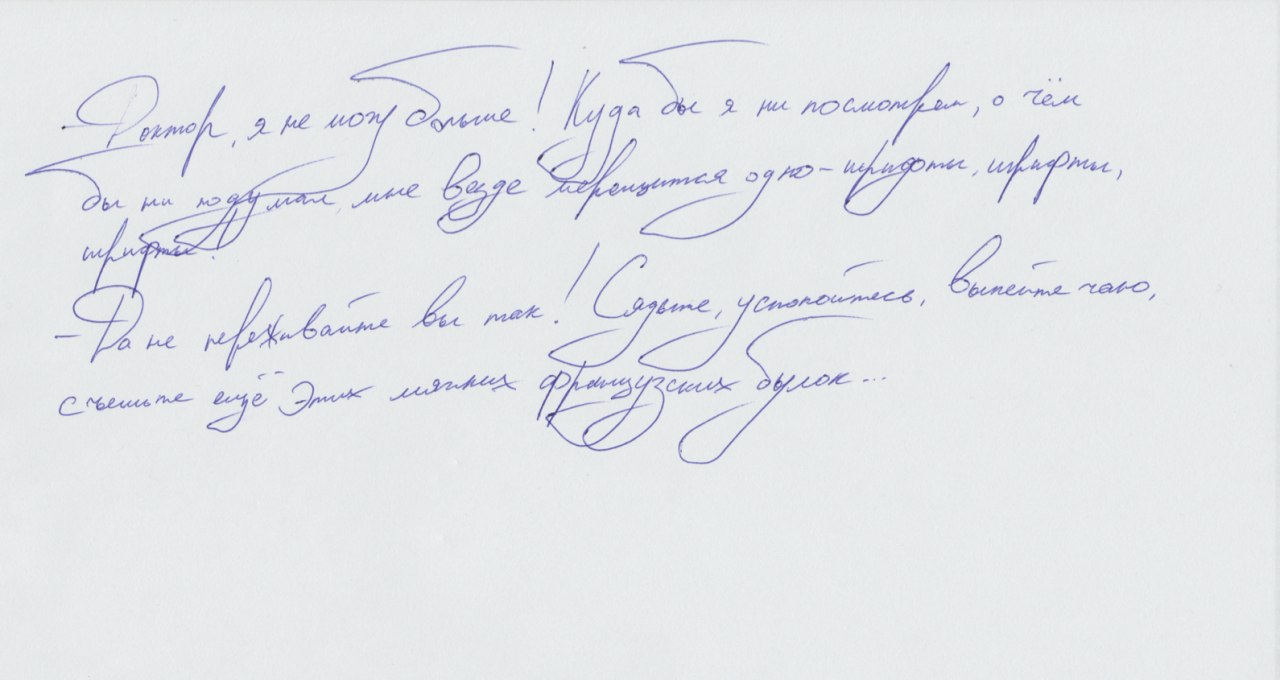 — Доктор, я не могу больше! Куда бы я ни посмотрел, о чём
бы ни подумал, мне везде мерещится одно - шрифты, шрифты,
шрифты!
— Да не переживайте вы так! Сядьте, успокойтесь, выпейте чаю,
съешьте ещё этих мягких французских булок...